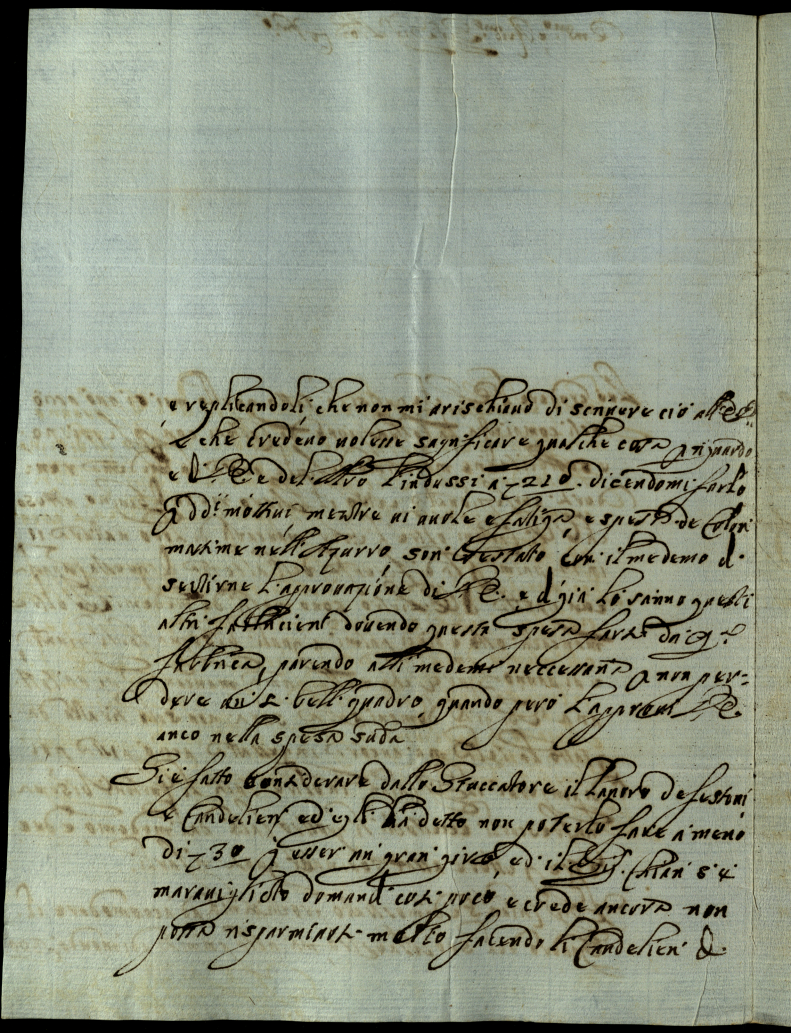 e replicandoli che non mi arischiavo di scrivere ciò all'
e che credevo volesse sagnificare qualche cosa riguardo
e del l'indussi a 210. dicendomi farlo
dd.i motivi, mentre vi vuole e fatiga, e spesa de Colori
massime nell'Azurro, son restato con il medemo
sentirne l'approvazione di e già lo sanno questi
altri dovendo questa spesa farsi da
fabbrica, parendo alli medemi neccessaria non per=
dere un bell quadro, quando però l'approvi
anco nella spesa sudª
Si è fatto considerare dallo Stuccatore il lavoro de festoni
e Candelieri ed egli ha detto non poterlo fare a meno
di 30 esser un gran giro, ed il Sig. Chiari si è
maravigliato domandi così poco, e crede ancora non
possa risparmiarsi molto facendo li Candelieri &.